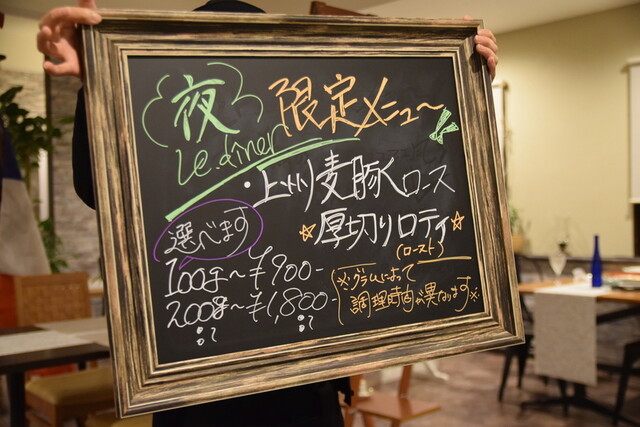 夜 限定メニュー
Le.diner
・上州麦豚ロース
☆厚切りロティ☆
(ロースト)
選べます
100g~¥900-
200g~¥1,800-
※グラムによって
調理時間が異なります※